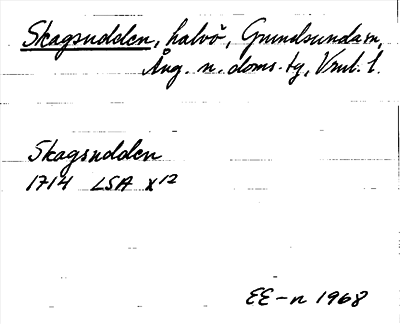 Skagsudden, halvö, Grundsunda sn,
Ång. n. doms. tg, Vnrl. l.
Skagsudden
1714 LSA X12
EE-n 1968